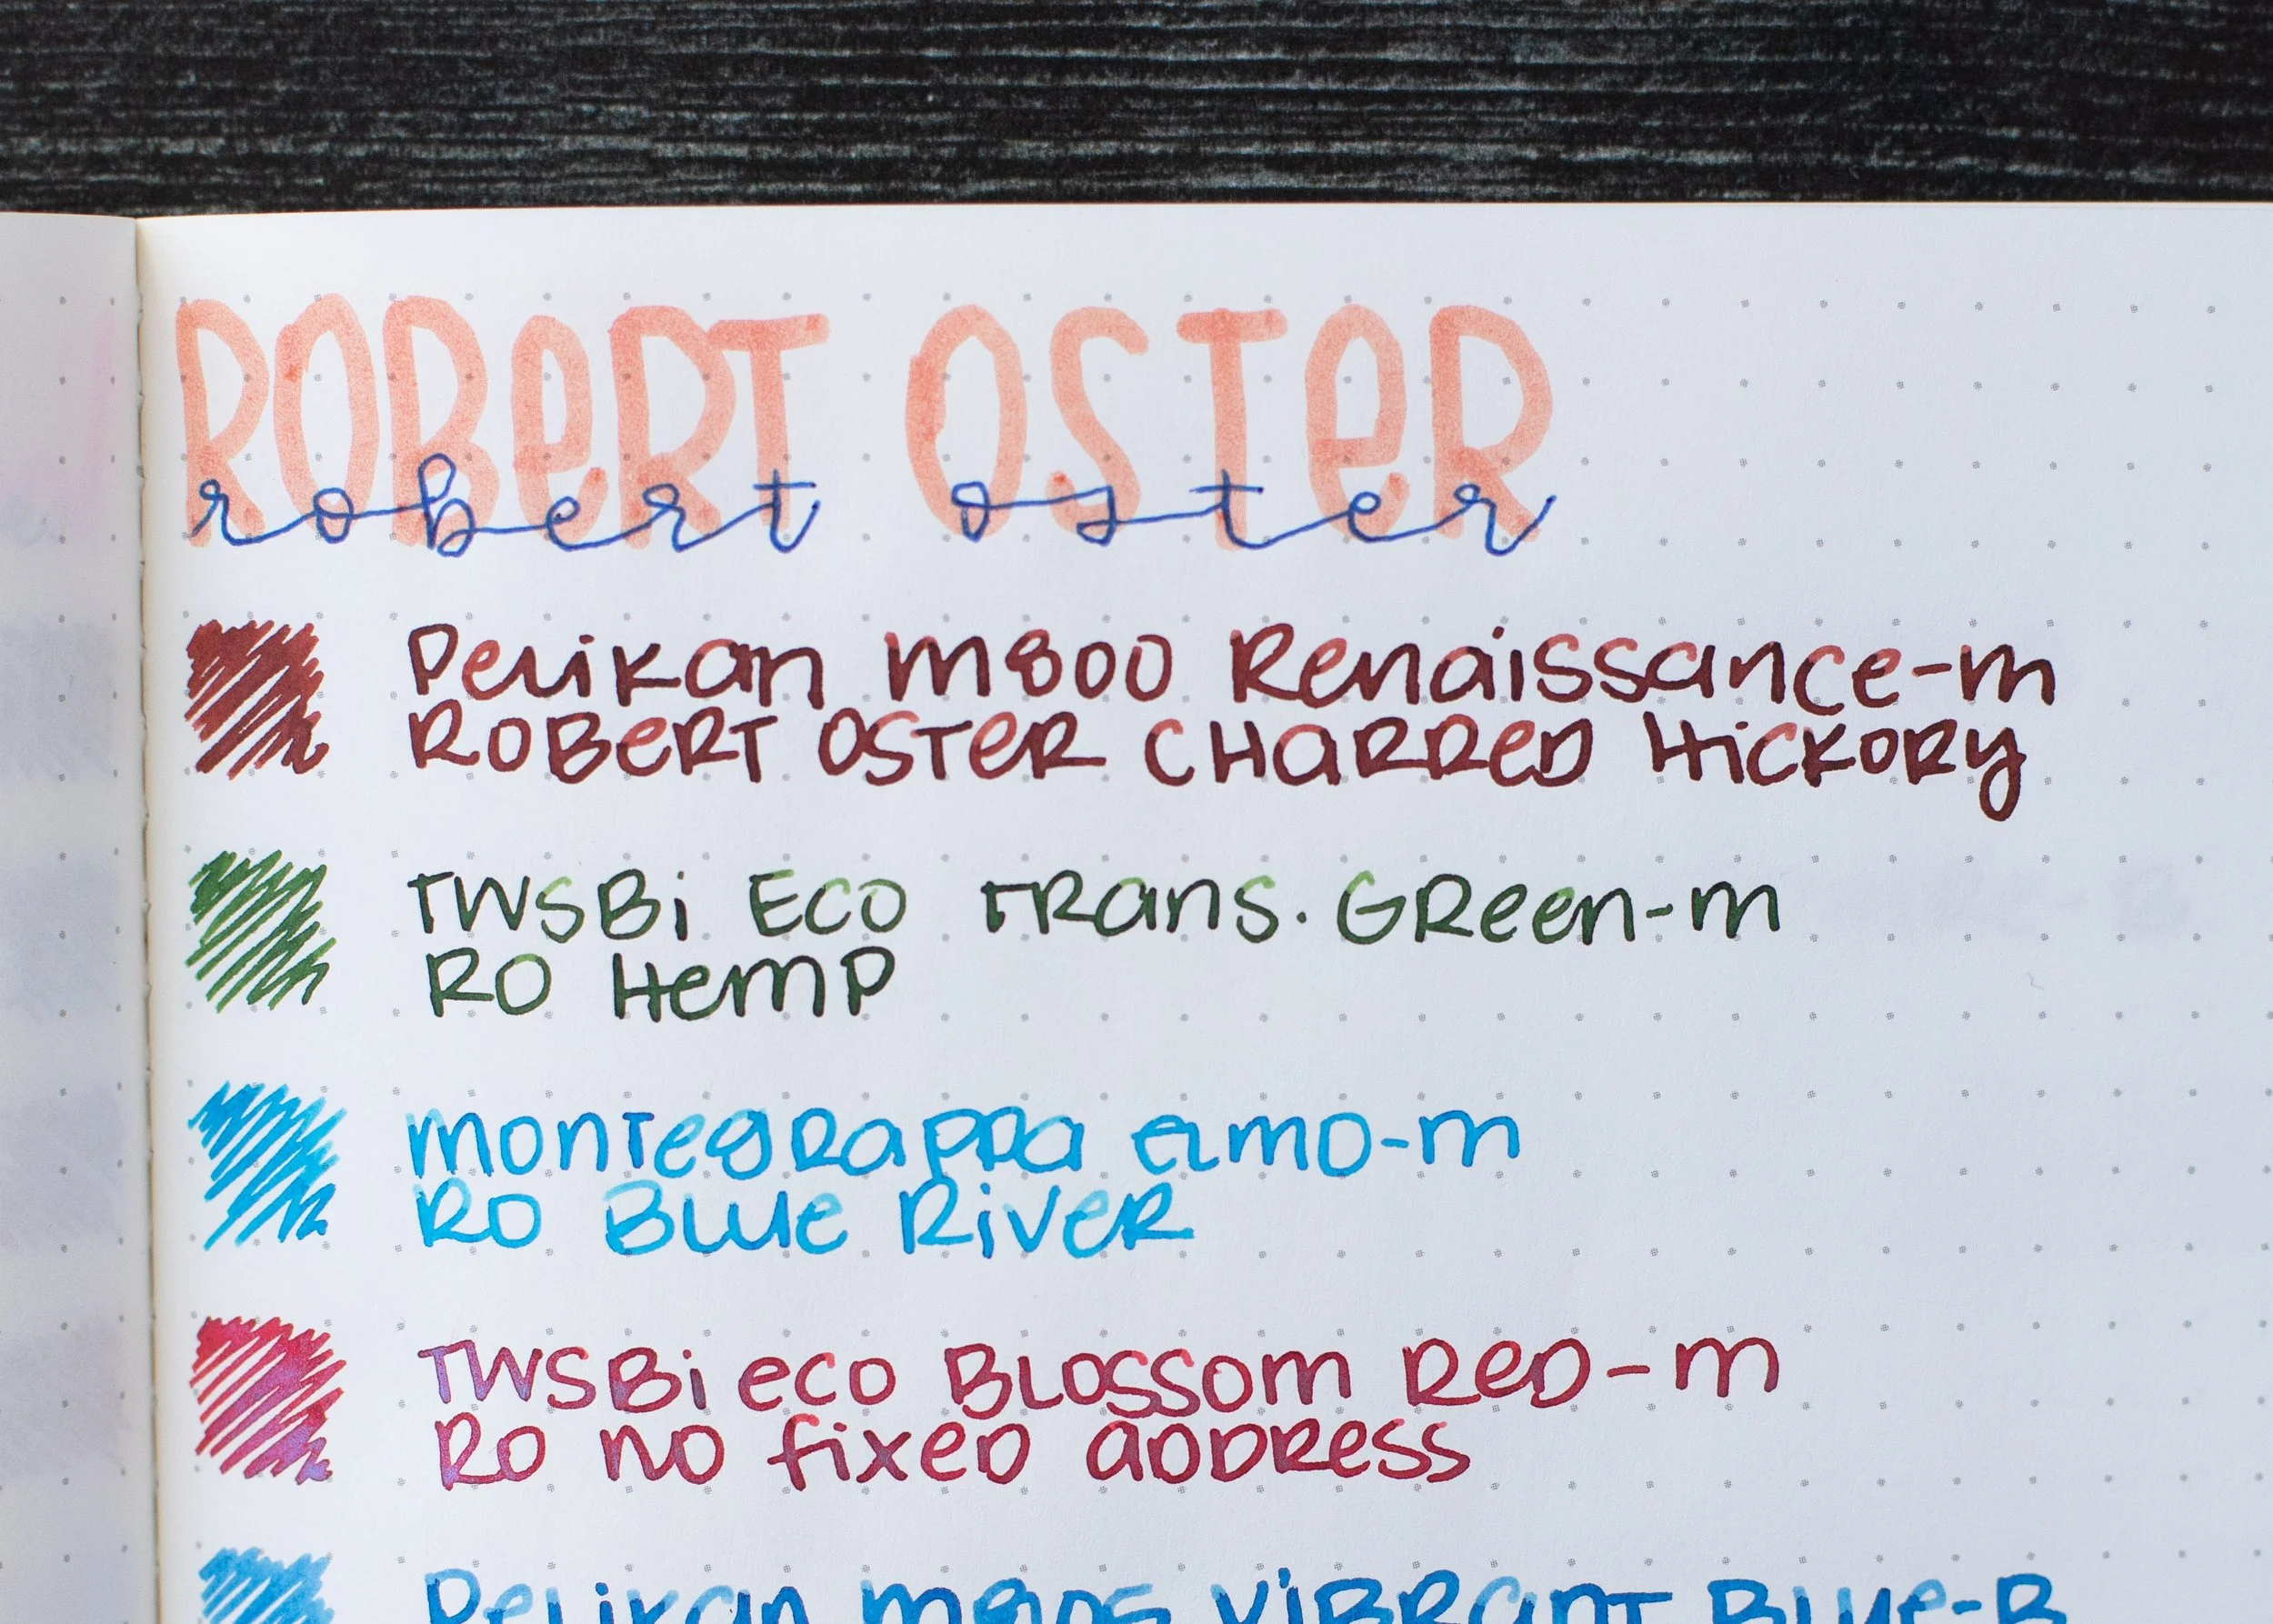 ROBERT OSTER
robert oster
Pelikan M800 Renaissance-m
ROBERT OSTER CHARRED HICKORY
TWSBi ECO TRans. GReen-m
RO Hemp
montegRappa elmo-m
RO Blue RiveR
TWSBi eco Blossom Red-m
RO no fixed address
Pelikan m805 ViBRanT Blue-B